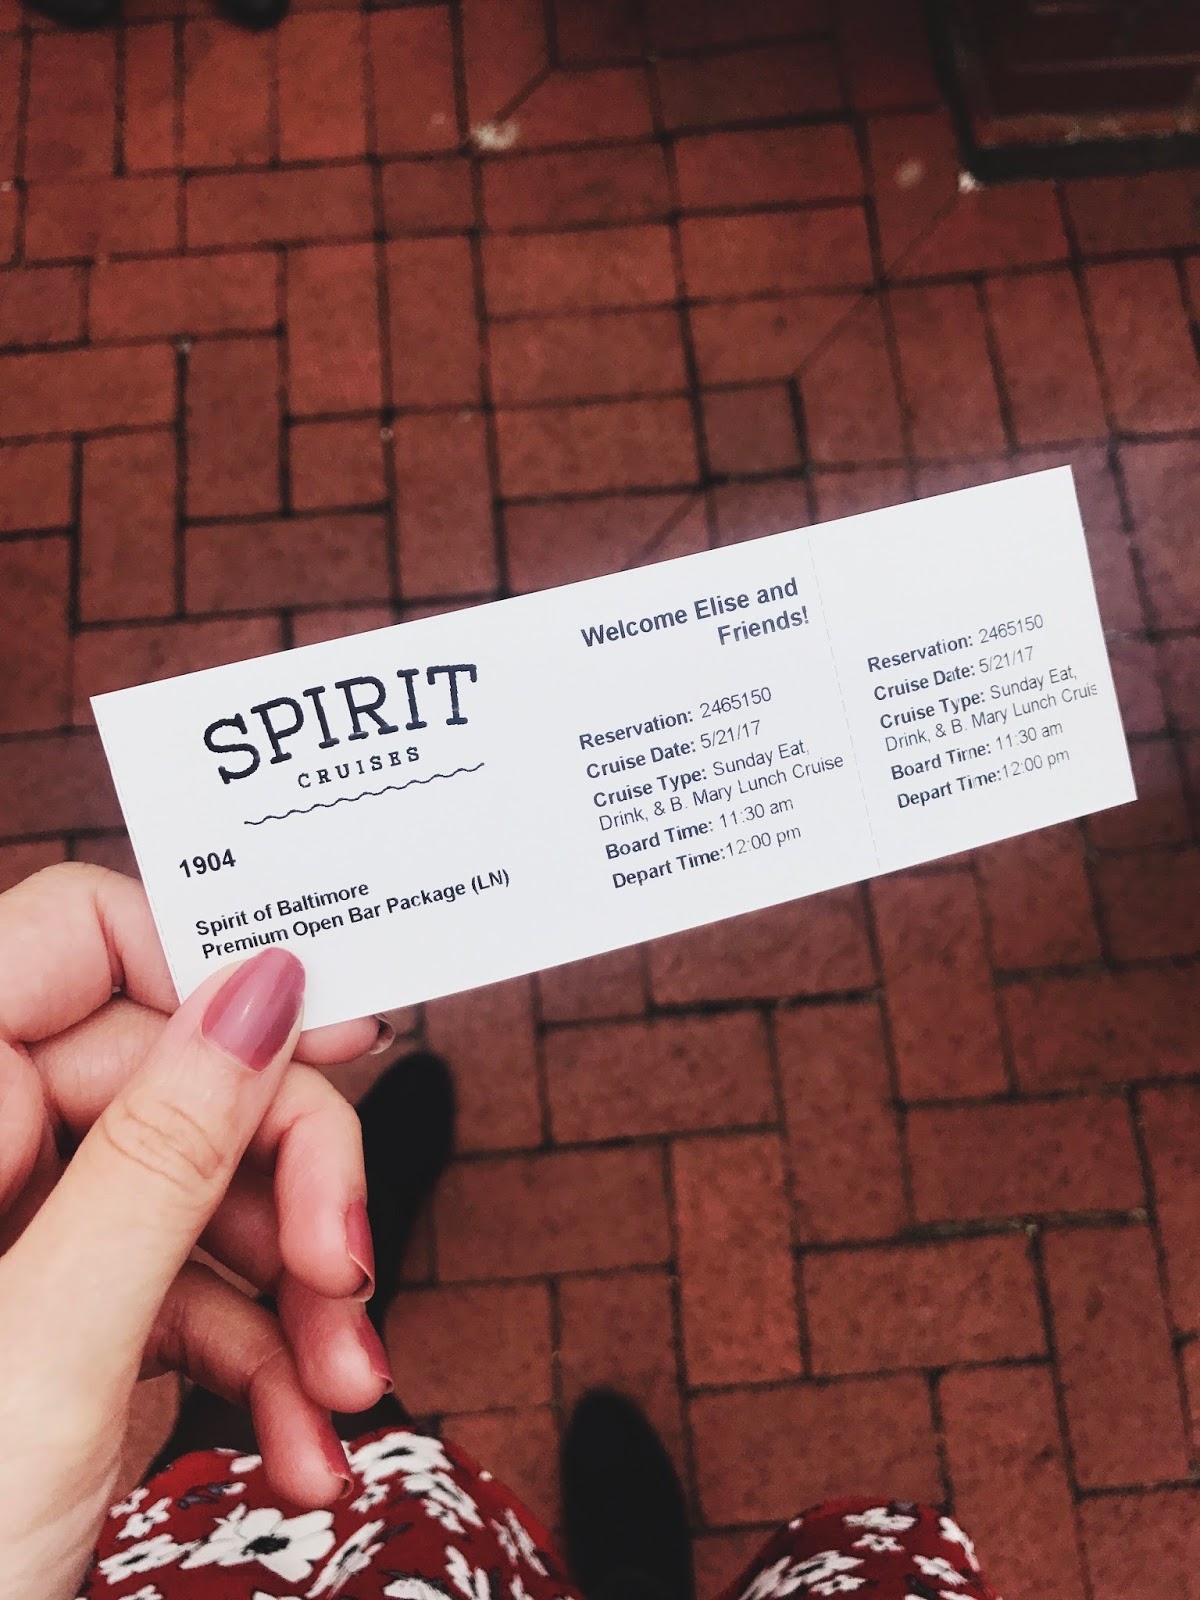 SPIRIT
CRUISES
1904
Spirit of Baltimore
Premium Open Bar Package (LN)
Welcome Elise and
Friends!
Reservation: 2465150
Cruise Date: 5/21/17
Cruise Type: Sunday Eat,
Drink, & B. Mary Lunch Cruise
Board Time: 11:30 am
Depart Time:12:00 pm
Reservation: 2465150
Cruise Date: 5/21/17
Cruise Type: Sunday Eat,
Drink, & B. Mary Lunch Cruis
Board Time: 11:30 am
Depart Time:12:00 pm